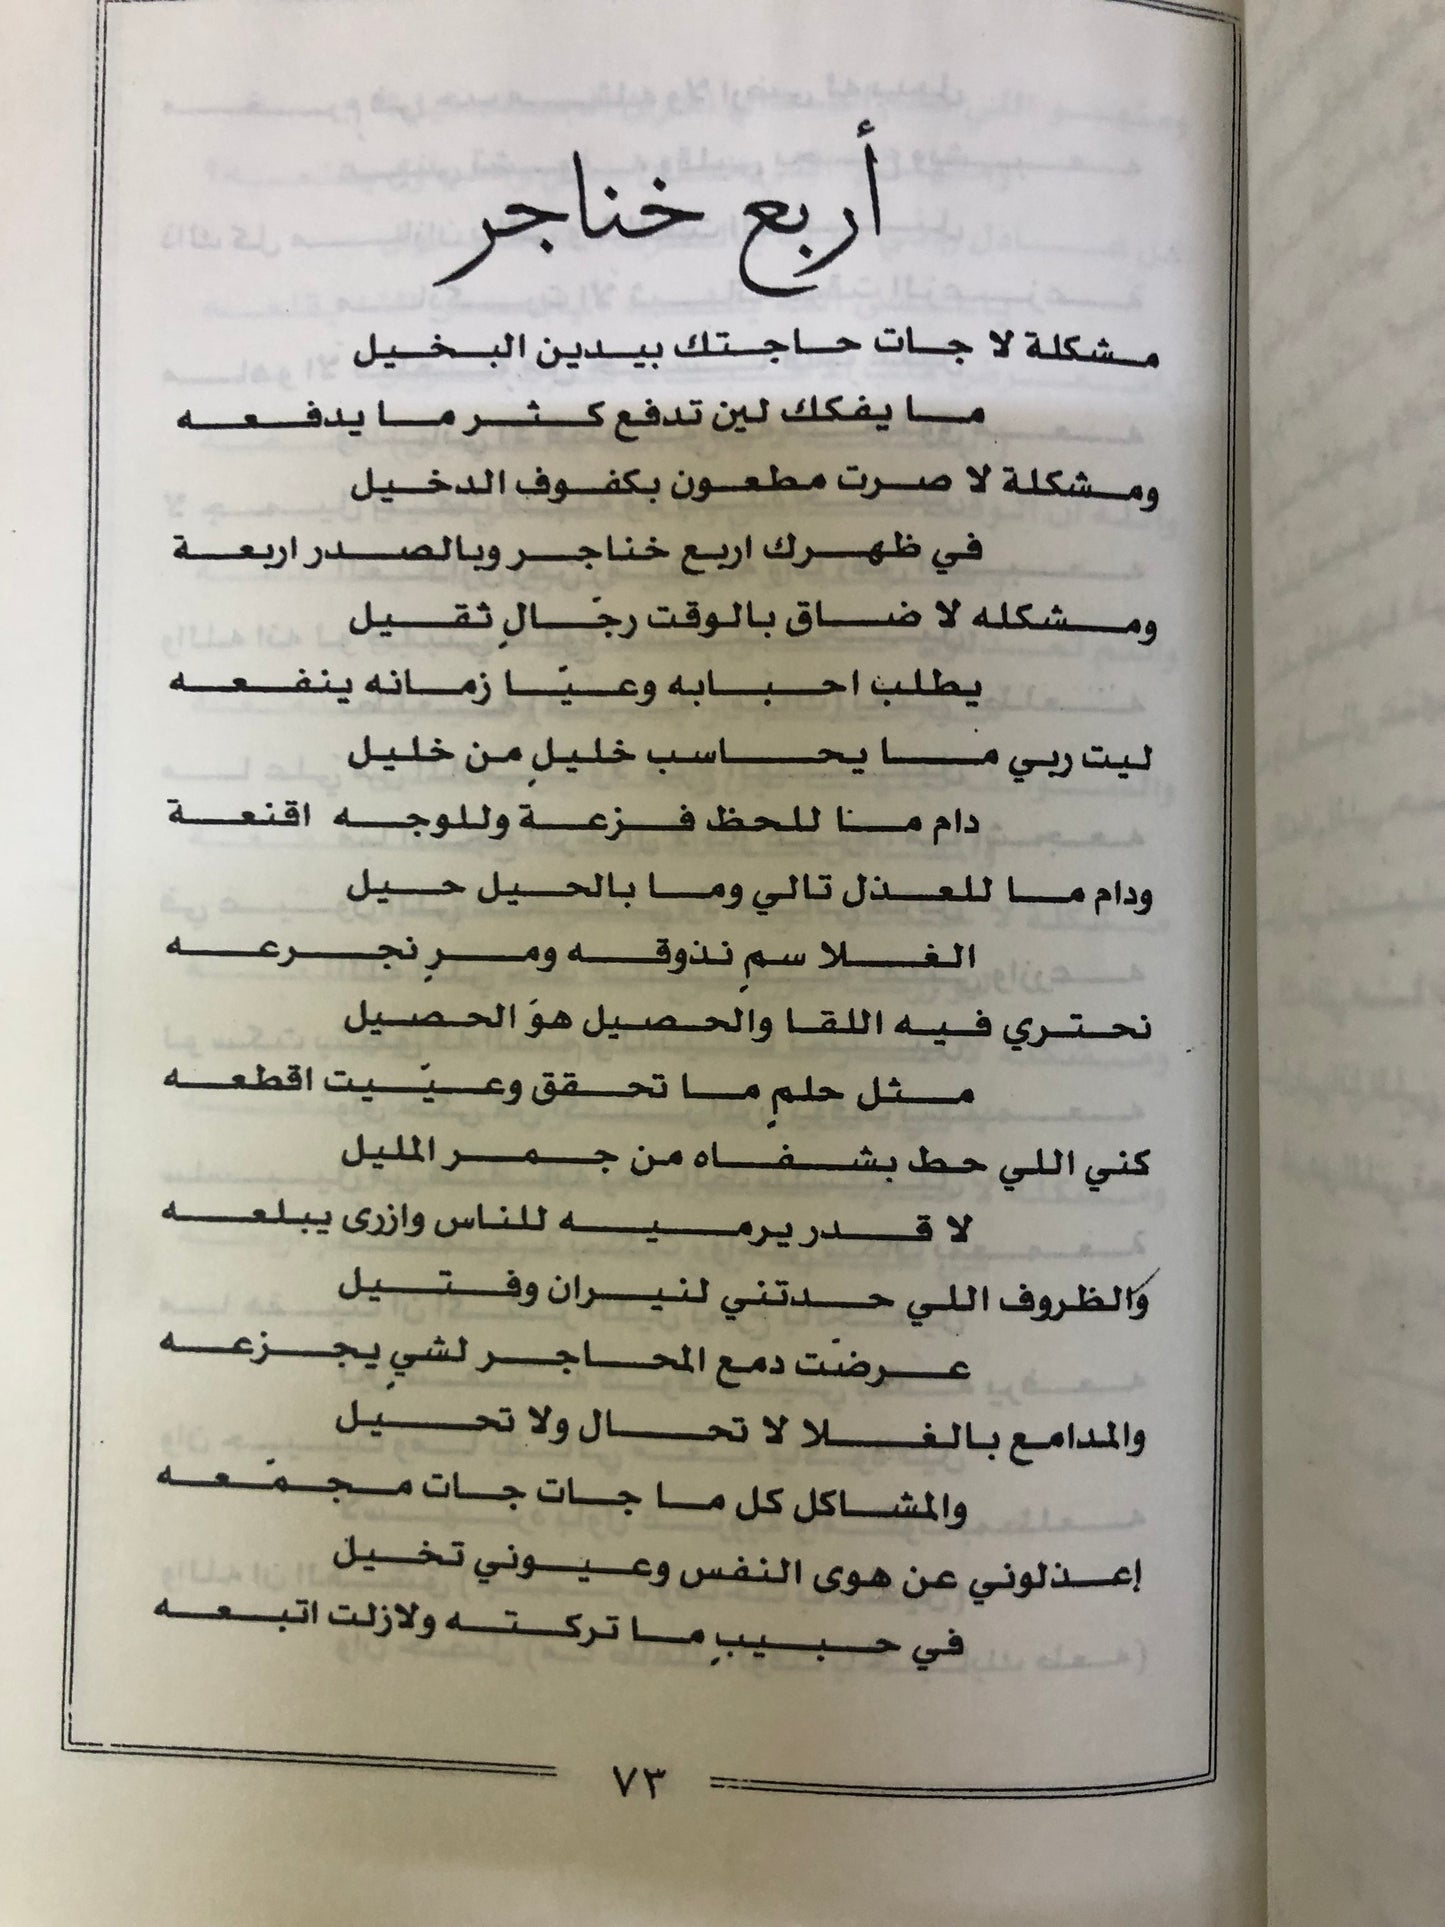 أربع خناجر
مشكلة لا جات حاجتك بيدين البخيل
ما يفكك لين تدفع كثر ما يدفعه
ومشكلة لا صرت مطعون بكفوف الدخيل
في ظهرك اربع خناجر وبالصدر اربعة
ومشكله لا ضاق بالوقت رجّالٍ ثقيل
يطلب احبابه وعيّا زمانه ينفعه
ليت ربي ما يحاسب خليلٍ من خليل
دام منا للحظ فزعة وللوجه اقنعة
ودام ما للعذل تالي وما بالحيل حيل
الغلا سمٍ نذوقه ومرٍ نجرعه
نحتري فيه اللقا والحصيل هوَ الحصيل
مثل حلمٍ ما تحقق وعيّيت اقطعه
كني اللي حط بشفاه من جمر المليل
لا قدر يرميه للناس وازرى يبلعه
والظروف اللي حدتني لنيران وفتيل
عرضّت دمع المحاجر لشيٍ يجزعه
والمدامع بالغلا لا تحال ولا تحيل
والمشاكل كل ما جات جات مجمّعه
إعذلوني عن هوى النفس وعيوني تخيل
في حبيبٍ ما تركته ولازلت اتبعه
٧٣